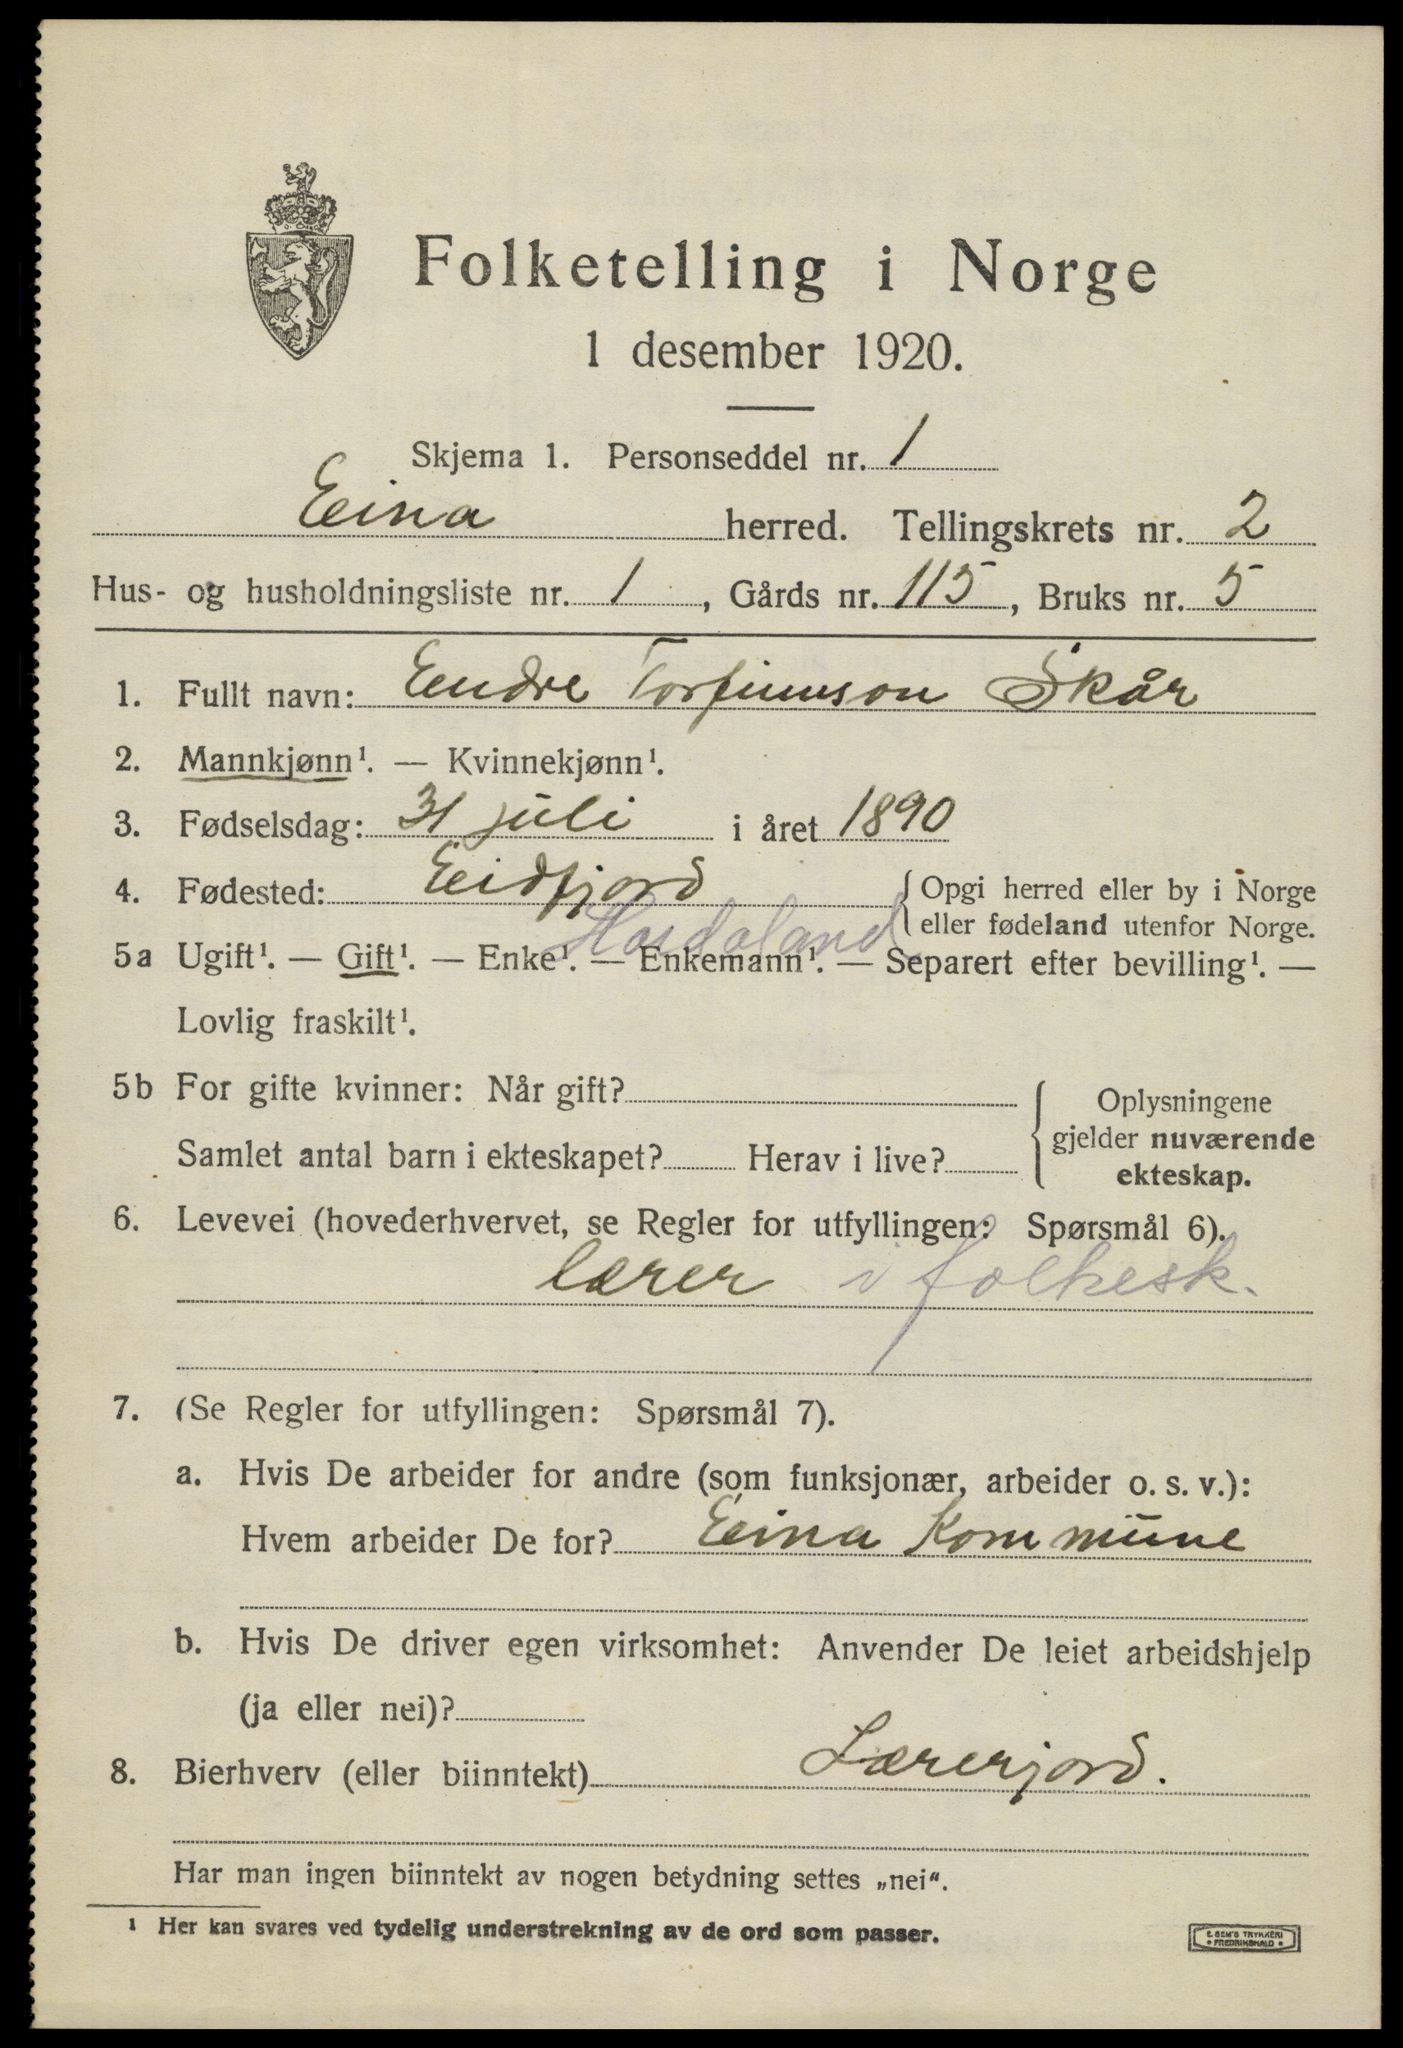 Folketelling i Norge
1 desember 1920.
Skjema 1. Personseddel nr. 1
Eina herred. Tellingskrets nr. 2
Hus- og husholdningsliste nr. 1, Gårds nr. 115, Bruks nr. 5
1. Fullt navn: Endre Torfinnson Skår
2. Mannkjønn¹. — Kvinnekjønn¹.
3. Fødselsdag: 31 juli i året 1890
4. Fødested: Eidfjord { Opgi herred eller by i Norge
eller fødeland utenfor Norge.
Hordaland
5a Ugift¹. — Gift¹. — Enke¹. — Enkemann¹. — Separert efter bevilling¹. —
Lovlig fraskilt¹.
5b For gifte kvinner: Når gift? { Oplysningene
gjelder nuværende
Samlet antal barn i ekteskapet? Herav i live?
ekteskap.
6. Levevei (hovederhvervet, se Regler for utfyllingen: Spørsmål 6).
lærer i folkesk.
7. (Se Regler for utfyllingen: Spørsmål 7).
a. Hvis De arbeider for andre (som funksjonær, arbeider o. s. v.):
Hvem arbeider De for? Eina Kommune
b. Hvis De driver egen virksomhet: Anvender De leiet arbeidshjelp
(ja eller nei)?
8. Bierhverv (eller biinntekt) Lærerjord.
Har man ingen biinntekt av nogen betydning settes „nei“.
¹ Her kan svares ved tydelig understrekning av de ord som passer.
E. SEM'S TRYKKERI
• FREDRIKSHALD •